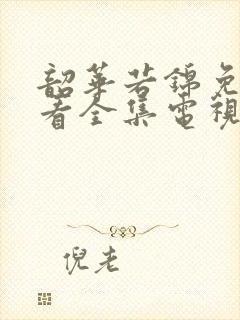 韶華若錦免
看全集電視
倪老